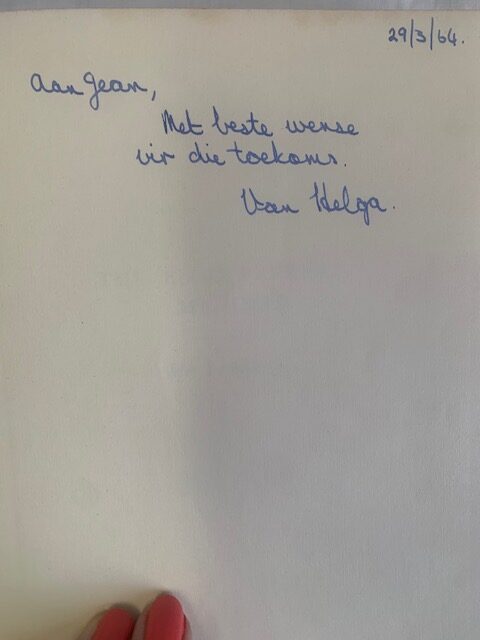 29/3/64.
Aan Jean,
Met beste wense
vir die toekoms.
Van Helga.